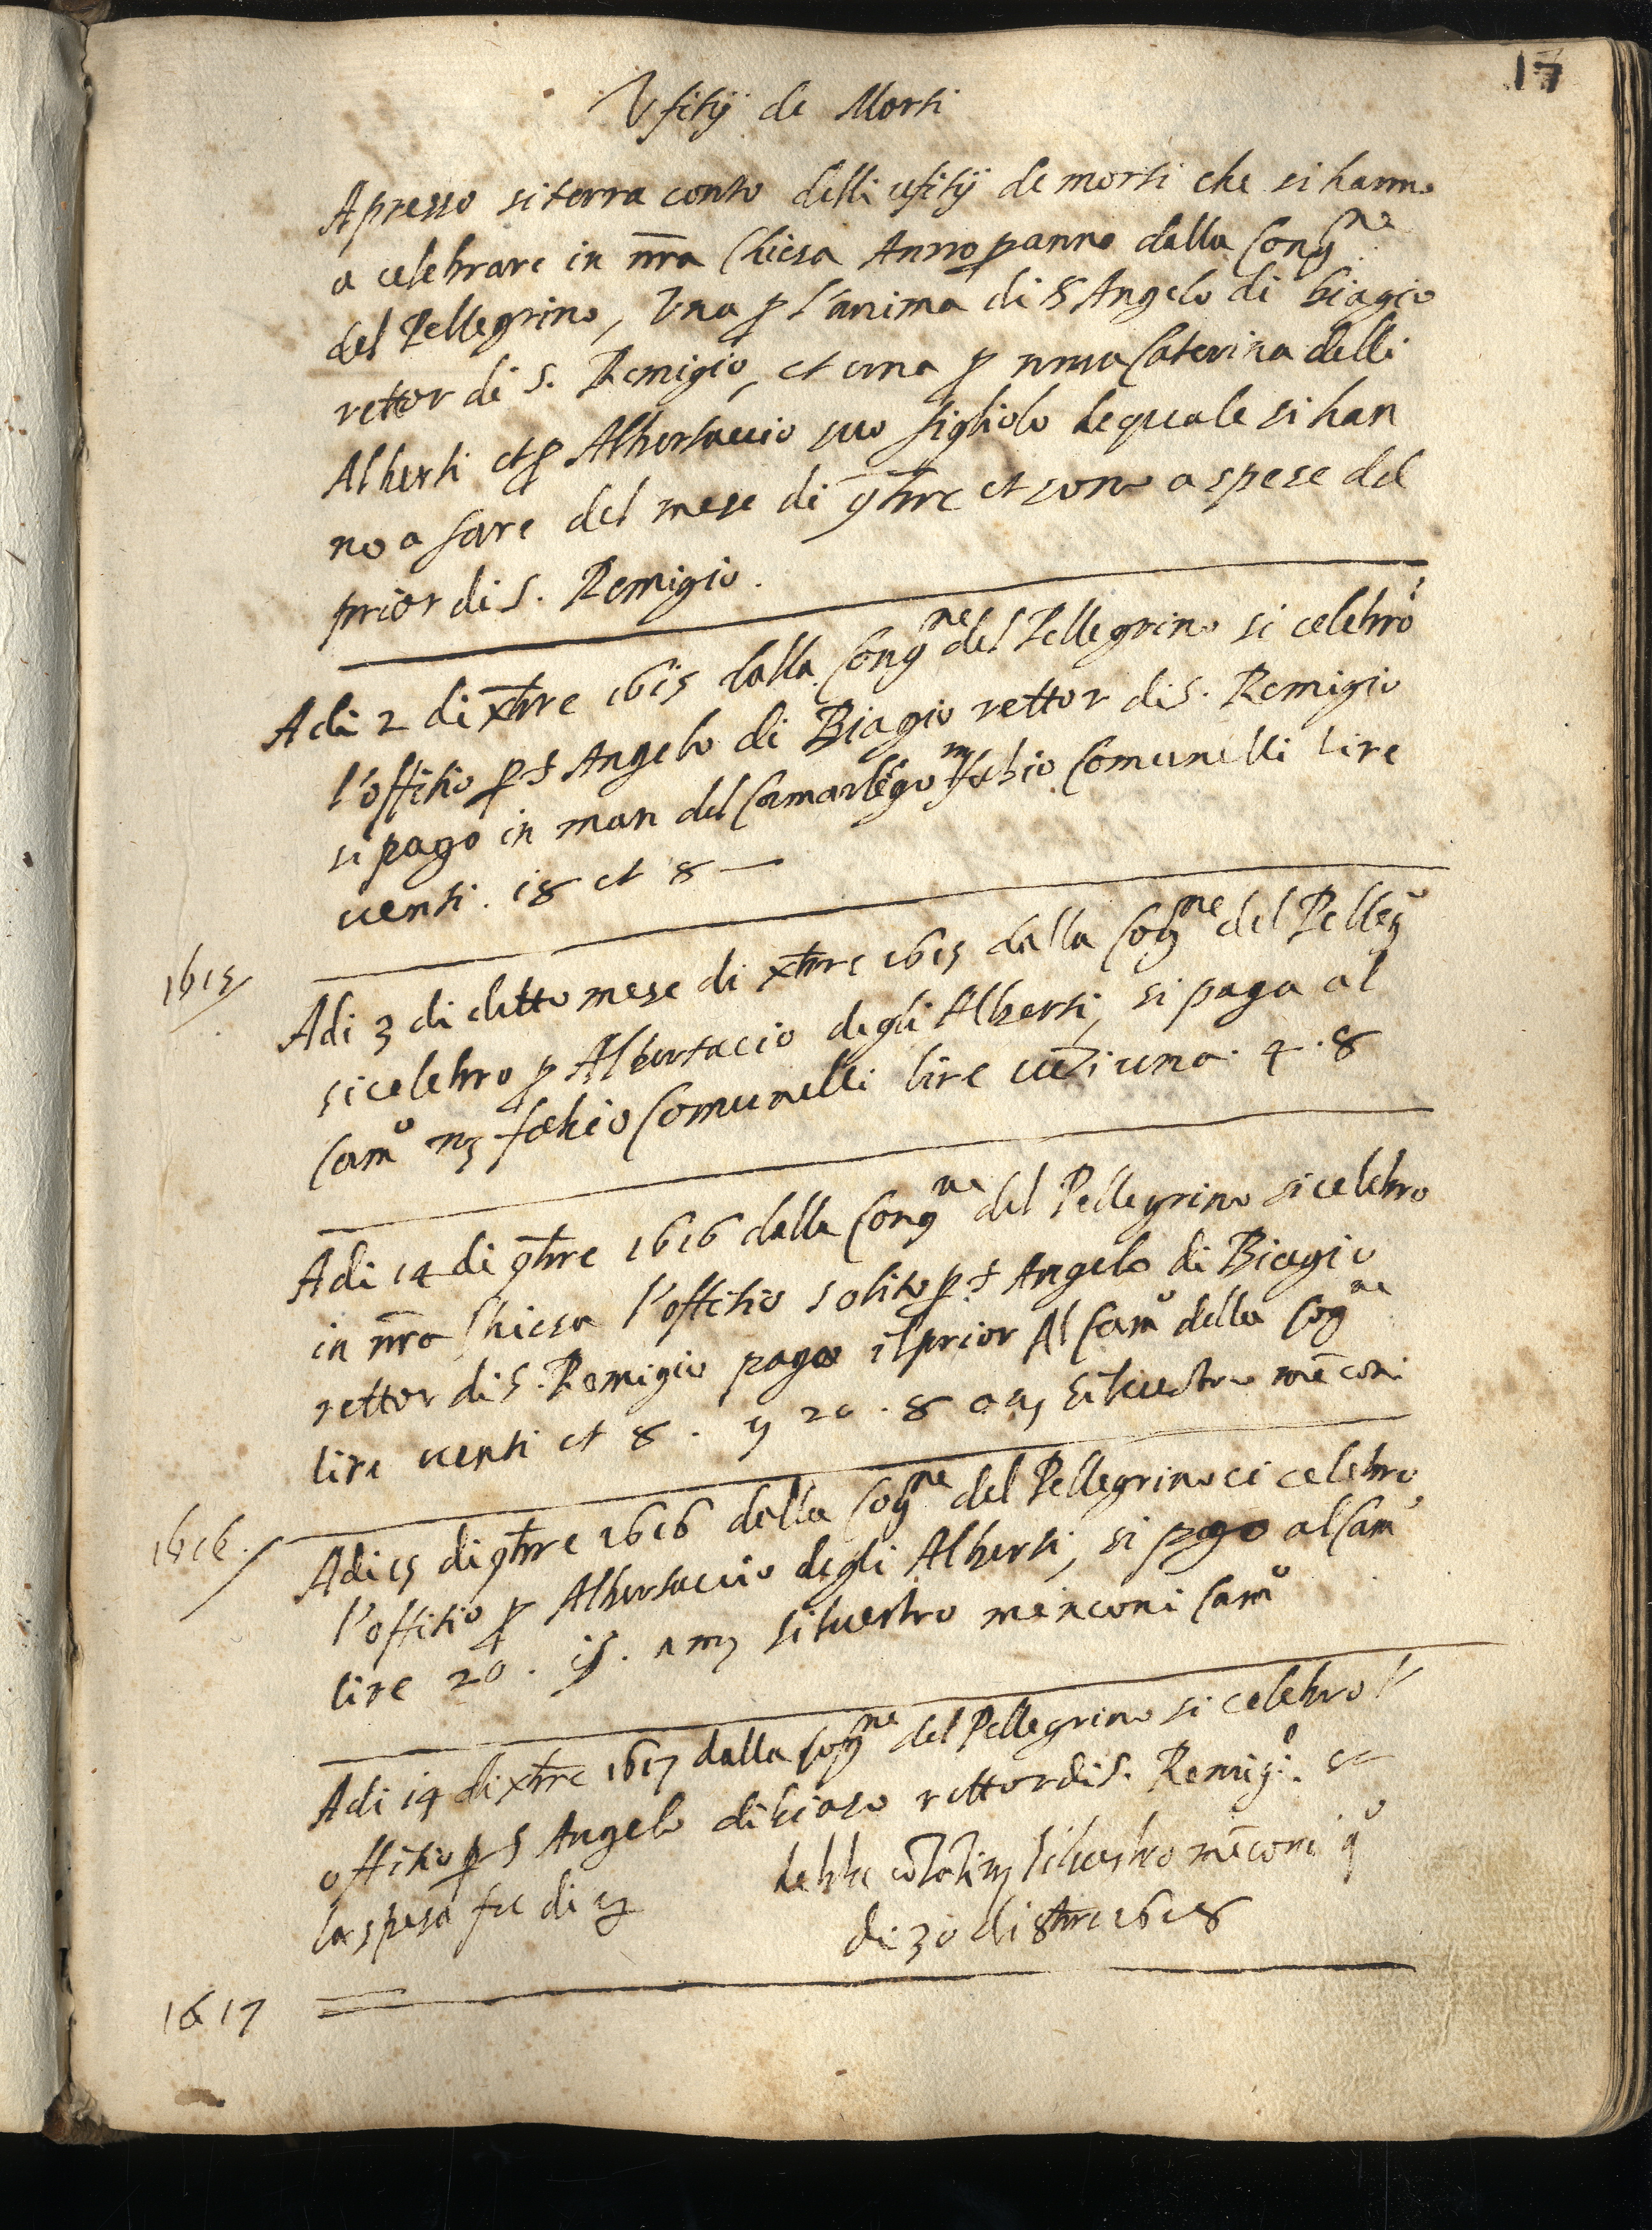 17
Vfitij de Morti
Apresso si terra conto delli ufitij de morti che si hanno
a celebrare in nr̄a Chiesa Anno p anno dalla Congne
del Pellegrino, Una p l'anima di S Angelo di biagio
rettor di S. Remigio, et una p Caterina delli
Alberti et p Albertaccio suo figliolo le quale si han
no a fare del mese di 9b̄re et sono a spese del
prior di S. Remigio.
Adi 2 di xb̄re 1615 dalla Congne del Pellegrino si celebrò
l'offitio p S Angelo di Biagio rettor di S. Remigio
si pago in man del Camarlēgo mr fabio Comunelli lire
venti. 18 et 8 —
1615
Adi 3 di detto mese di xb̄re 1615 dalla Cogne del Pellego
si celebro p Albertaccio degli Alberti, si paga al
Camo mr fabio Comunelli lire vēti una. 4. 8
Adi 14 di 9b̄re 1616 dalla Congne del Pellegrino si celebro
in nr̄a Chiesa l'offitio solito p S Angelo di Biagio
rettor di S. Remigio pago il prior Al Camo della Cogne
lire venti et 8. 20. 8 a mr Siluestro mēconi
1616.
Adi 15 di 9b̄re 1616 dalla Cogne del Pellegrino ci celebro
l'offitio p Albertaccio degli Alberti, si pago al Camo
lire 20. a mr Siluestro menconi Camo
Adi 14 di xb̄re 1617 dalla Cogne del Pellegrino si celebro l'
offitio p S Angelo di biaso rettor di S. Remigo.
la spesa fu di
debbe Siluestro mēconi qo
di 30 di 8bre 1618
1617